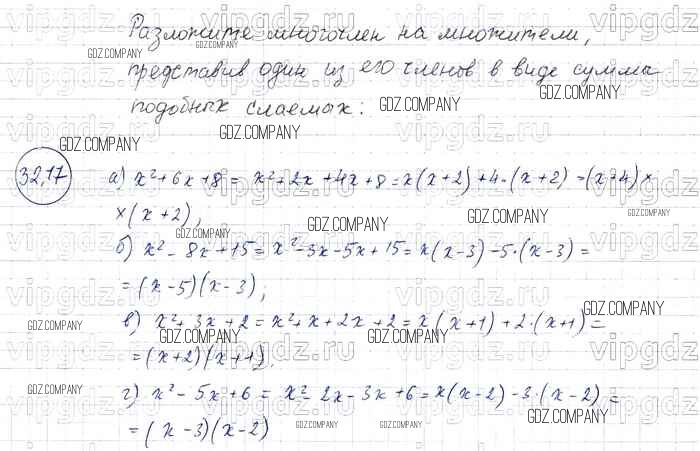 Разложите многочлен на множители,
представив один из его членов в виде суммы
подобных слаемых:
32.17 а) x²+6x+8 = x²+2x+4x+8 = x(x+2)+4·(x+2) = (x+4)×
×(x+2);
б) x²-8x+15 = x²-3x-5x+15 = x(x-3)-5·(x-3) =
= (x-5)(x-3);
в) x²+3x+2 = x²+x+2x+2 = x(x+1)+2·(x+1) =
= (x+2)(x+1).
г) x²-5x+6 = x²-2x-3x+6 = x(x-2)-3·(x-2) =
= (x-3)(x-2)